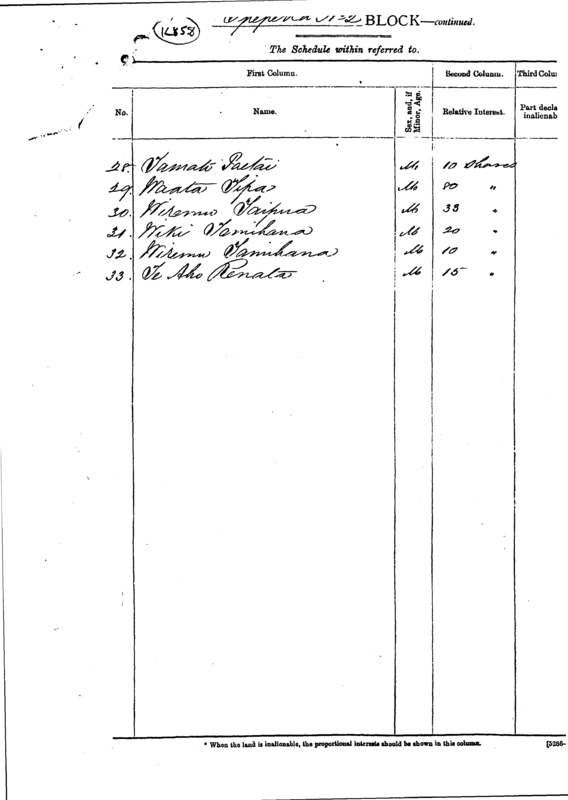 (12858)
BLOCK—continued.
The Schedule within referred to.
First Column. Second Column. Third Colu
No. Name. Sex, and, if Minor, Age. Relative Interest. Part decla inalienab
28. Tamati Paetai M 10 Shares
29. Waata Tipa M 80 "
30. Wiremu Taipua M 33 "
31. Wiki Tamihana M 20 "
32. Wiremu Tamihana M 10 "
33. Te Aho Renata M 15 "
* When the land is inalienable, the proportional interests should be shown in this column. [5286-